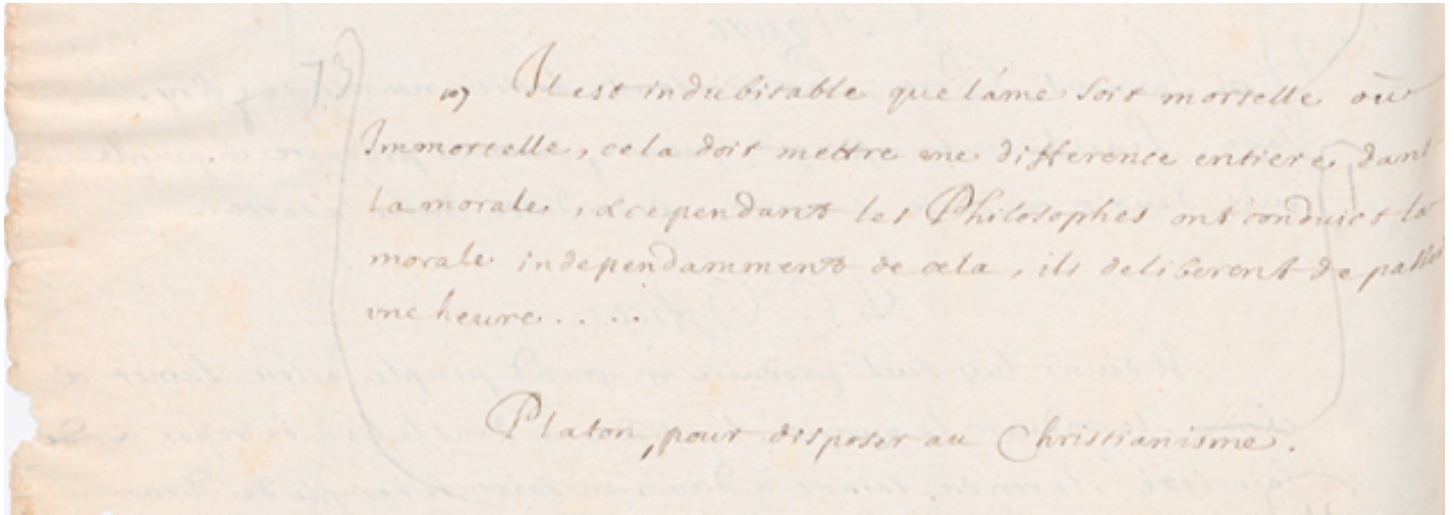 73
Il est indubitable que l'ame soit mortelle où
Immortelle, cela doit mettre une difference entiere dans
la morale, & cependant les Philosophes ont conduict la
morale independamment de cela, ils deliberent de passer
une heure . . . .
Platon, pour disposer au Christianisme.